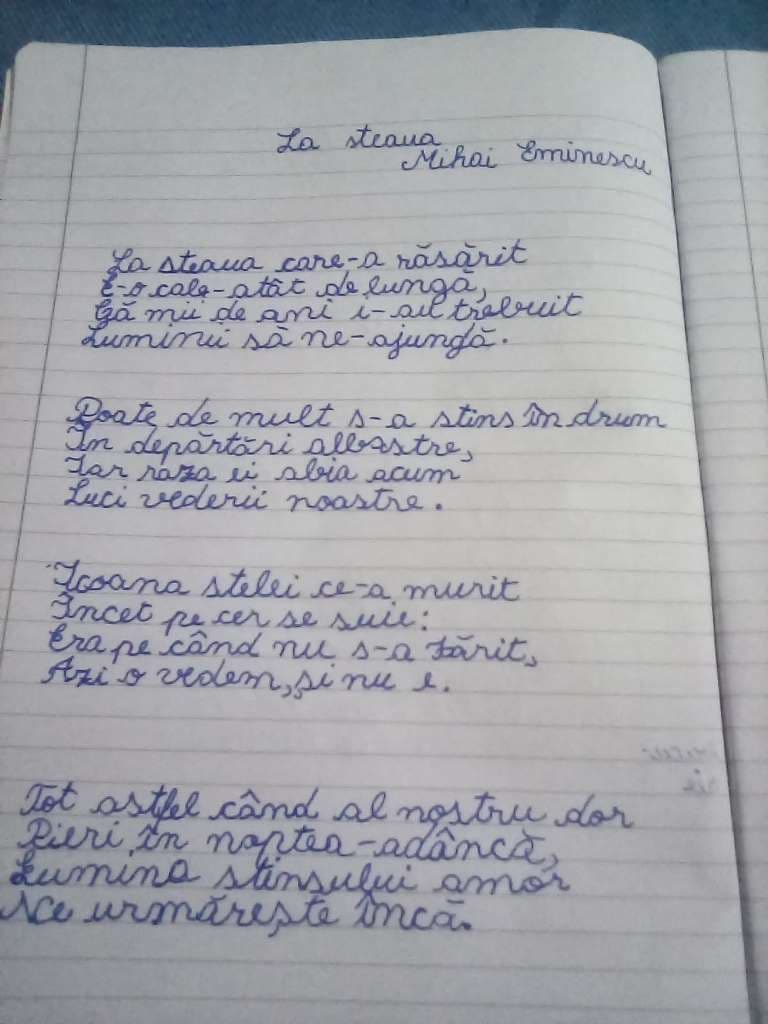 La steaua
Mihai Eminescu
La steaua care-a răsărit
E-o cale-atât de lungă,
Că mii de ani i-au trebuit
Luminii să ne-ajungă.
Poate de mult s-a stins în drum
În depărtări albastre,
Iar raza ei abia acum
Luci vederii noastre.
Icoana stelei ce-a murit
Încet pe cer se suie:
Era pe când nu s-a zărit,
Azi o vedem, și nu e.
Tot astfel când al nostru dor
Pieri în noaptea-adâncă,
Lumina stinsului amor
Ne urmărește încă.